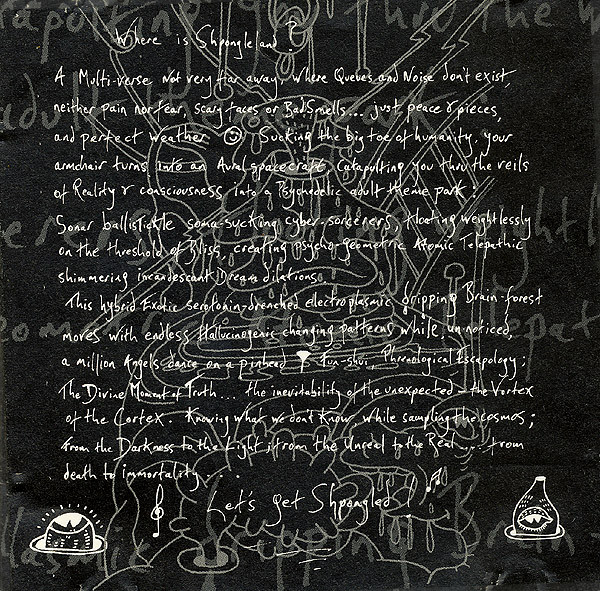 Where is Shpongleland?
A Multi-verse not very far away, where Queues and Noise don't exist,
neither pain nor fear, scary faces or Bad Smells... just peace & pieces,
and perfect weather ☺ Sucking the big toe of humanity, your
armchair turns into an Aural spacecraft Catapulting you thru the veils
of Reality & consciousness into a Psychedelic adult theme park:
Sonar ballistickle soma-sucking cyber-sorcerers, floating weightlessly
on the threshold of Bliss, creating psycho-geometric Atomic Telepathic
shimmering Incandescant Dream dilations.
This hybrid Exotic serotonin-drenched electroplasmic dripping Brain-forest
moves with endless Hallucinogenic changing patterns while, un-noticed,
a million Angels dance on a pinhead Fun-shui, Phrenological Escapology;
The Divine Moment of Truth... the inevitability of the unexpected – the Vortex
of the Cortex. Knowing what we don't Know while sampling the cosmos;
from the Darkness to the Light; from the Unreal to the Real.... from
death to immortality
Let's get Shpongled!